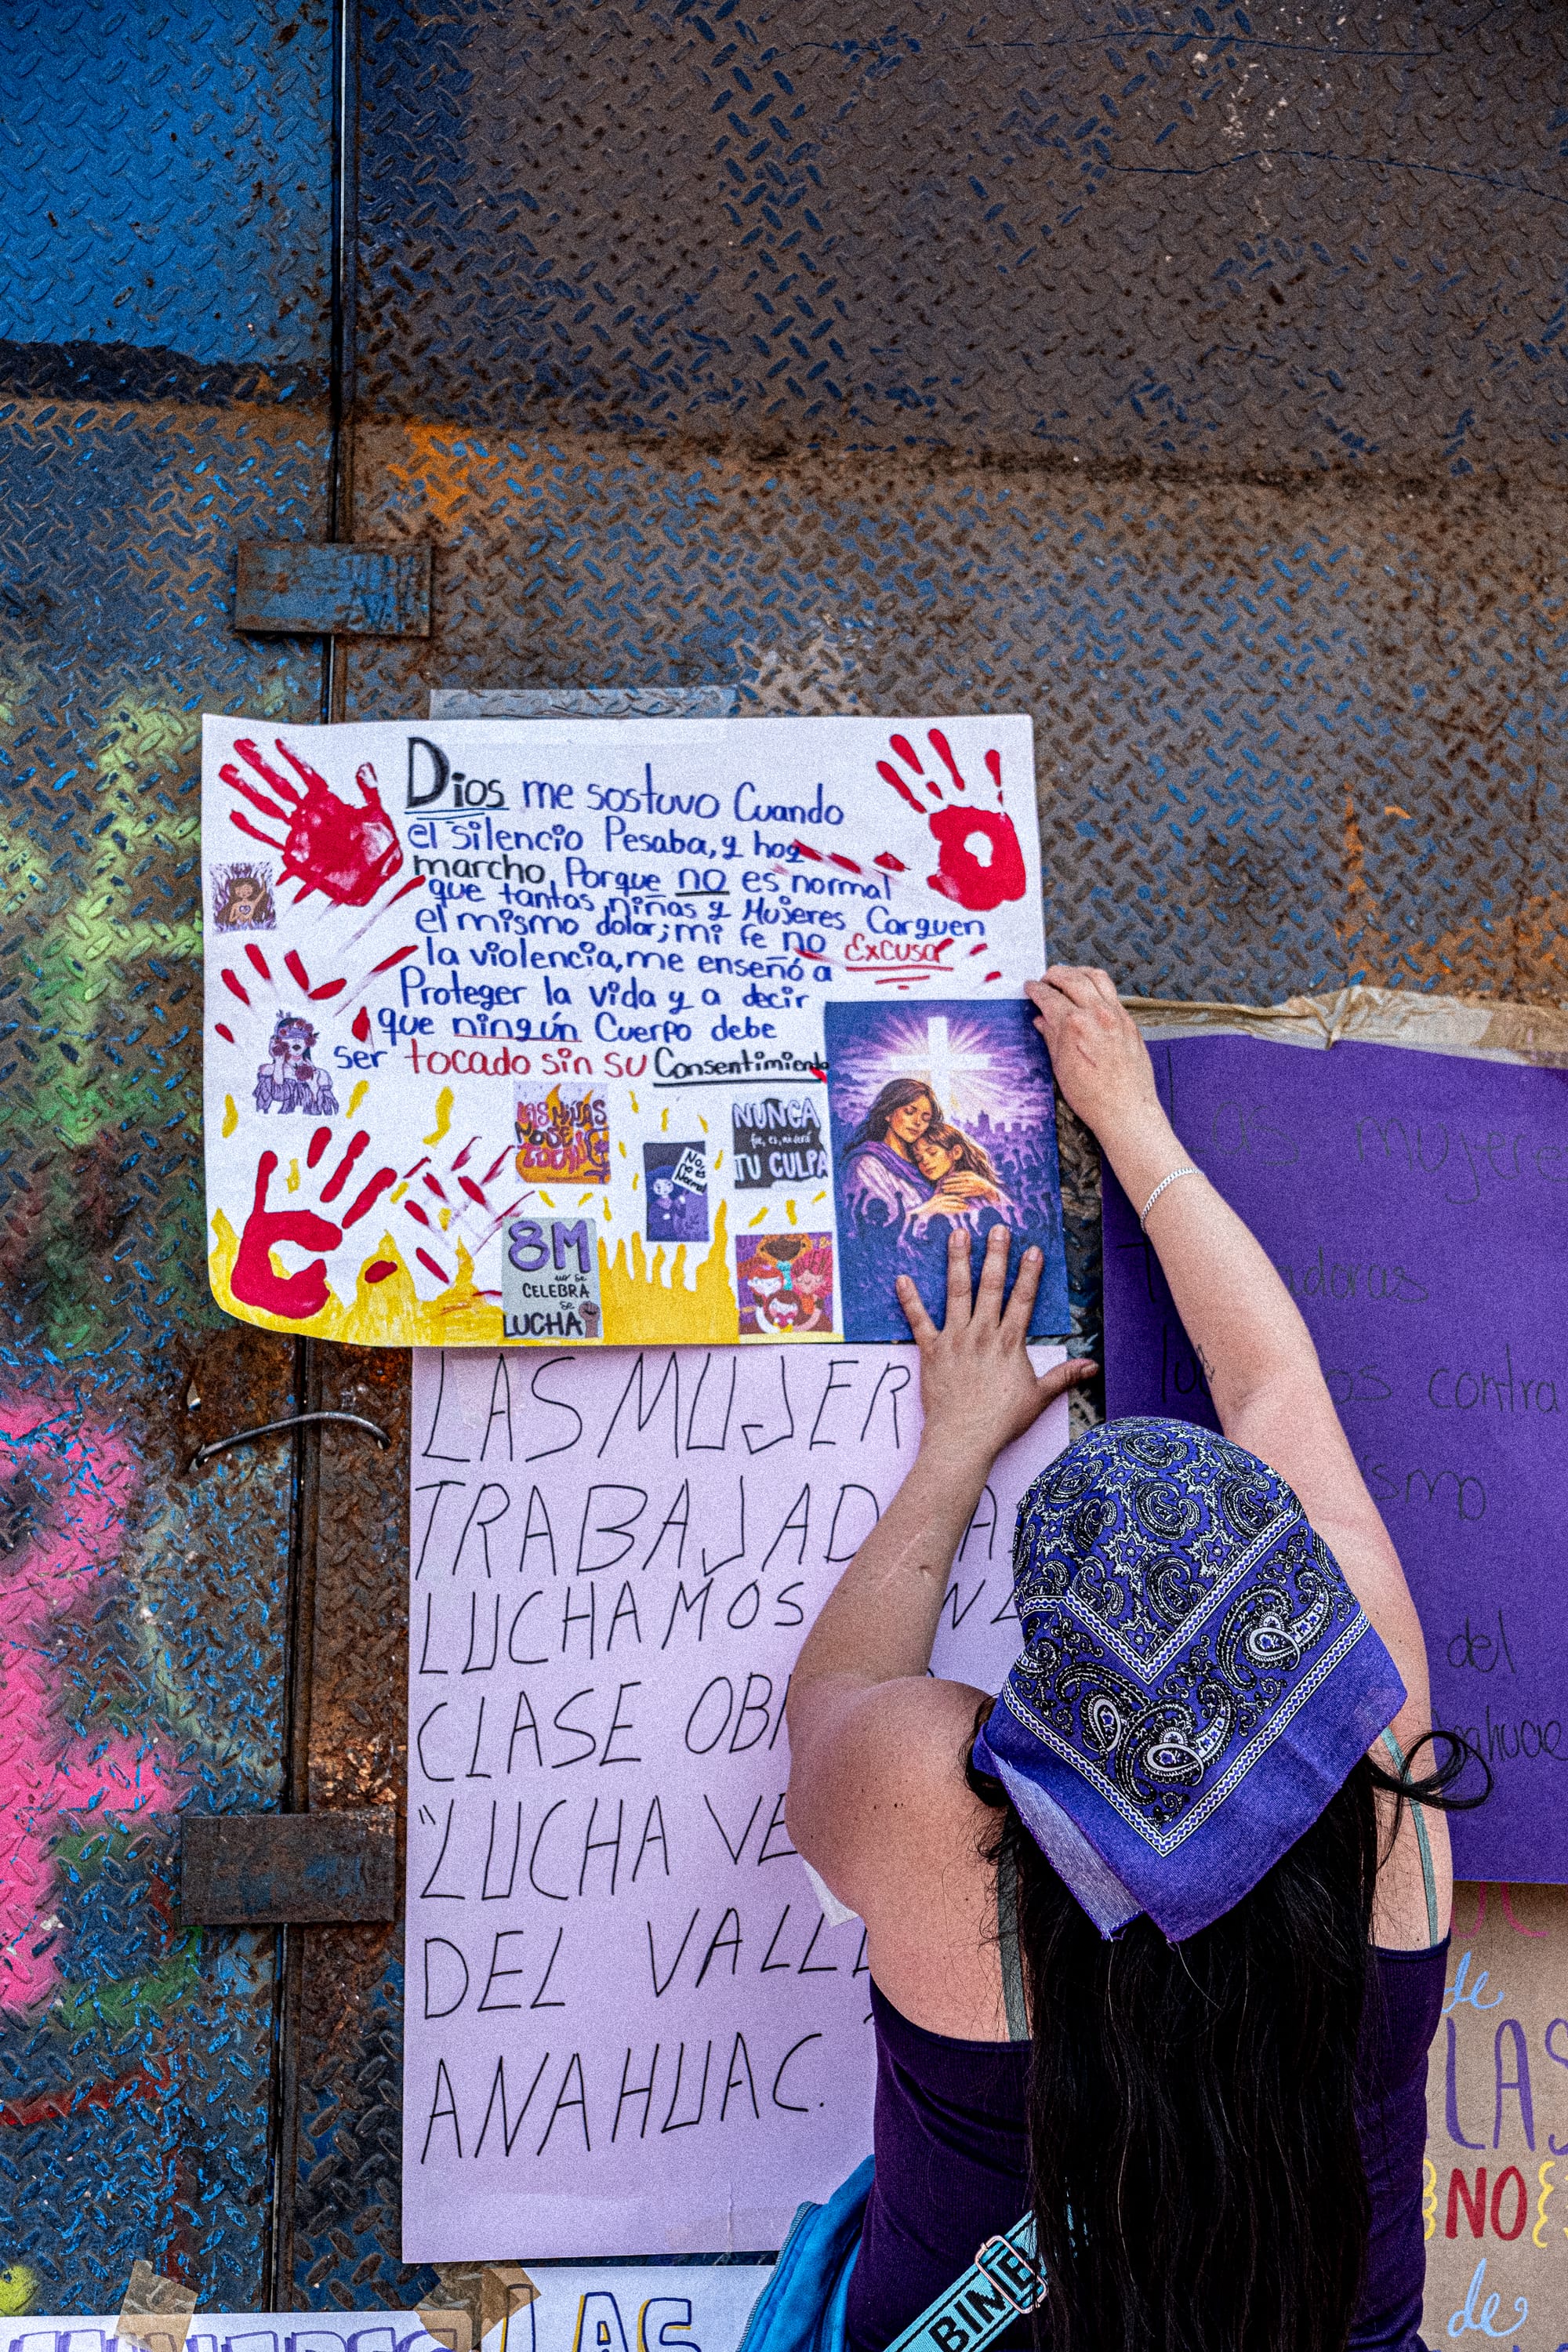 Dios me sostuvo Cuando
el silencio Pesaba, y hoy
marcho Porque no es normal
que tantas niñas y Mujeres Carguen
el mismo dolor; mi fe no Excusa
la violencia, me enseñó a
Proteger la vida y a decir
que ningún Cuerpo debe
ser tocado sin su Consentimiento
LAS NIÑAS
NO SE
TOCAN
No,
no es
Normal
NUNCA
fue, es, ni será
TU CULPA
8M
no se
CELEBRA
se
LUCHA
LAS MUJER
TRABAJAD
LUCHAMOS
CLASE OB
"LUCHA VE
DEL VALL
ANAHUAC."
Las mujere
adoras
os contra
ismo
del
Anahuac
de
LAS
NO
de
LAS
MUJERES
BIN